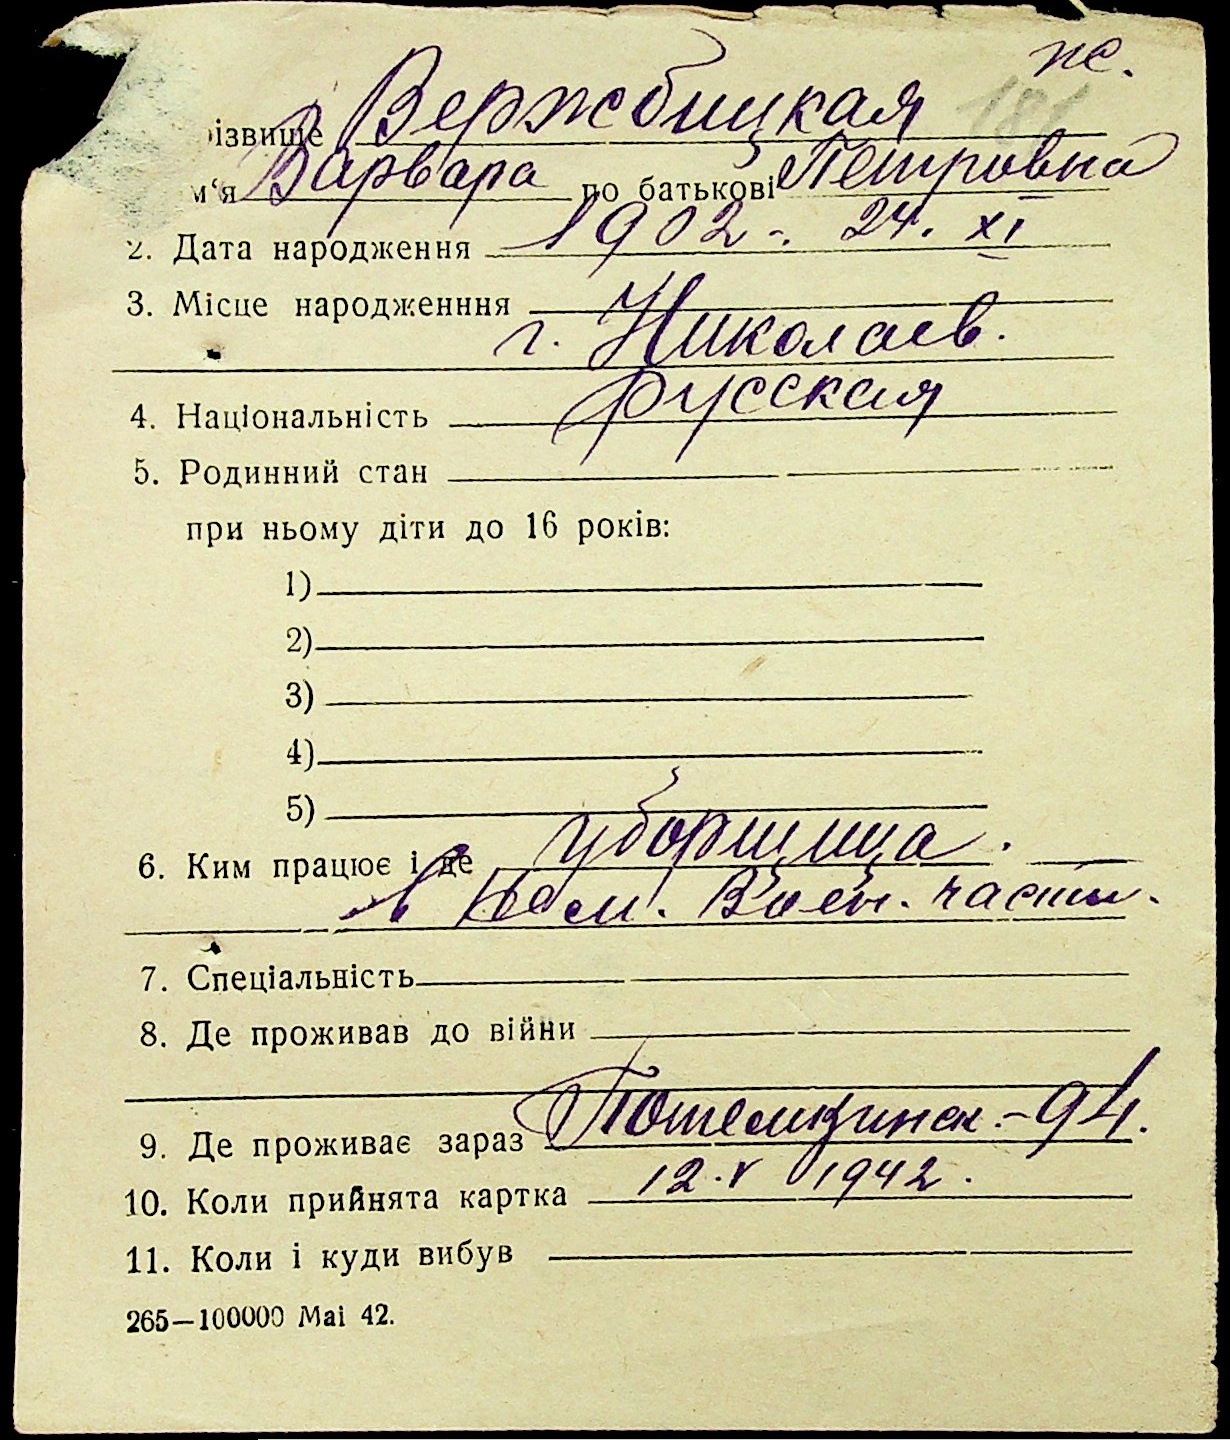 ж.
181
ізвище Вержбицкая
м‘я Варвара по батькові Петровна
2. Дата народження 1902 - 24. XI
3. Місце народженння
г. Николаев.
4. Національність русская
5. Родинний стан
при ньому діти до 16 років:
1)
2)
3)
4)
5)
6. Ким працює і де уборщица.
в Нем. Воен. части.
7. Спеціальність
8. Де проживав до війни
9. Де проживає зараз Потемкинск. - 94.
10. Коли прийнята картка 12. V 1942.
11. Коли і куди вибув
265—100000 Маі 42.